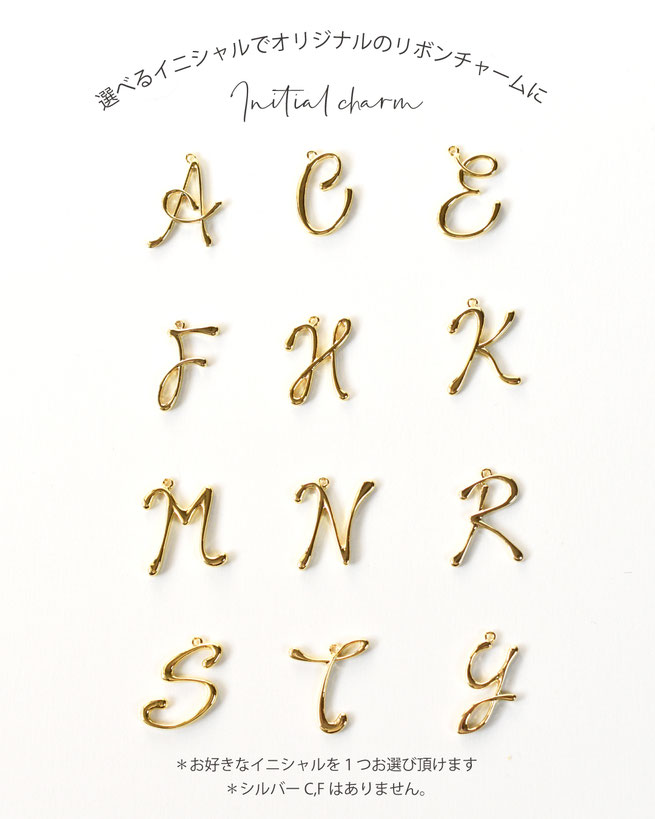 選べるイニシャルでオリジナルのリボンチャームに
Initial charm
A C E
F H K
M N R
S T Y
＊お好きなイニシャルを1つお選び頂けます
＊シルバーC,Fはありません。